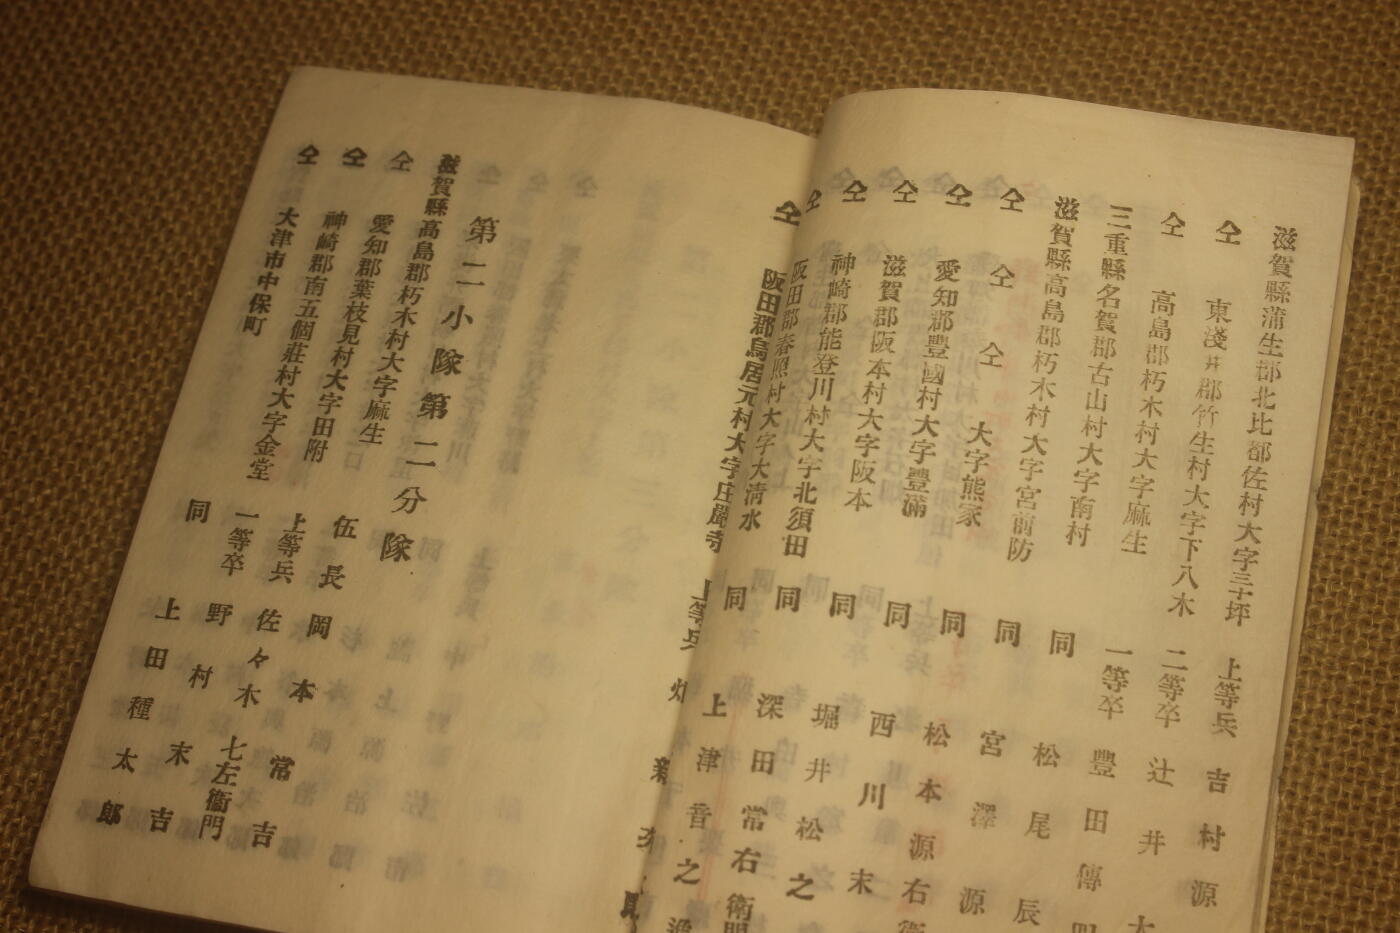 滋賀縣蒲生郡北比都佐村大字三十坪 上等兵 吉村源
仝 東淺井郡竹生村大字下八木 二等卒 辻井
仝 高島郡朽木村大字麻生 一等卒 豐田傳四
三重縣名賀郡古山村大字南村 同 松尾辰
滋賀縣高島郡朽木村大字宮前防 同 宮澤源
仝 仝 仝 大字熊家 同 松本源右衛
仝 愛知郡豐國村大字豐滿 同 西川末
仝 滋賀郡阪本村大字阪本 同 堀井松之
仝 神崎郡能登川村大字北須田 同 深田常右衛門
仝 阪田郡春照村大字大清水 同 上津音之
仝 阪田郡鳥居元村大字庄嚴寺 上等兵 畑
第二小隊第二分隊
滋賀縣高島郡朽木村大字麻生 伍長 岡本常吉
仝 愛知郡葉枝見村大字田附 上等兵 佐々木七左衞門
仝 神崎郡南五個莊村大字金堂 一等卒 野村末吉
仝 大津市中保町 同 上田種太郎